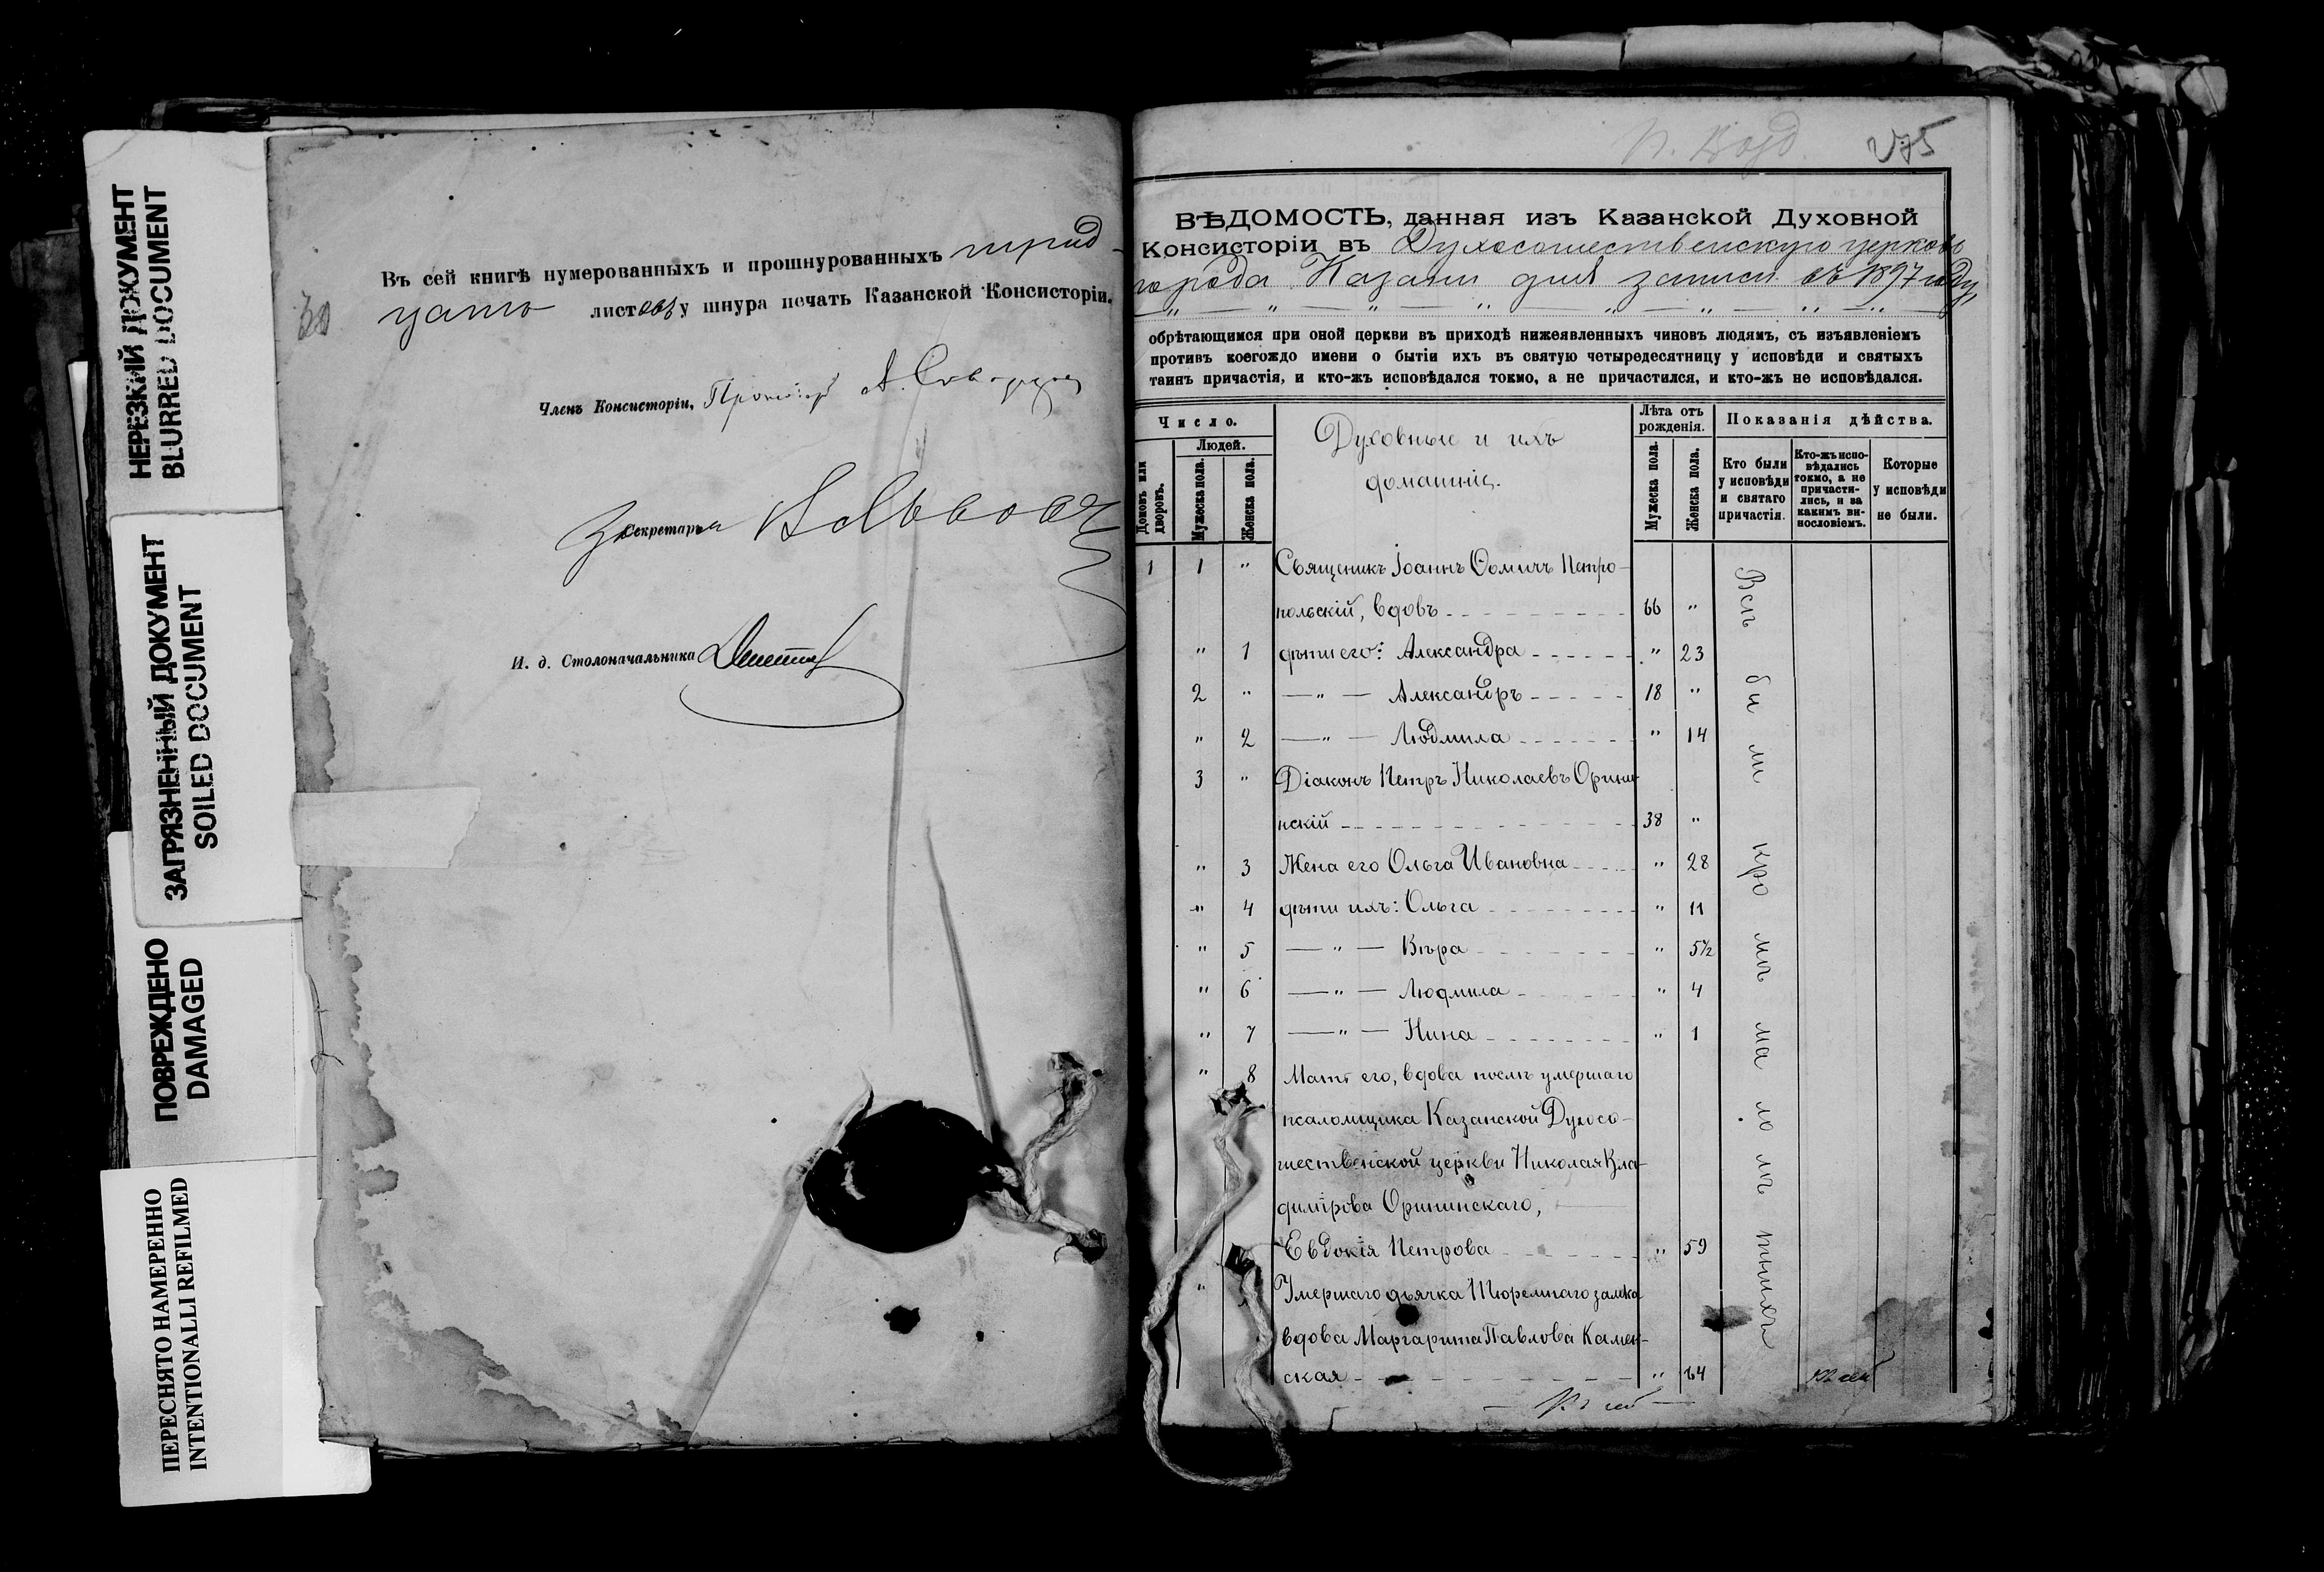 НЕРЕЗКИЙ ДОКУМЕНТ
BLURRED DOCUMENT
ЗАГРЯЗНЕННЫЙ ДОКУМЕНТ
SOILED DOCUMENT
ПОВРЕЖДЕНО
DAMAGED
ПЕРЕСНЯТО НАМЕРЕННО
INTENTIONALLI REFILMED
Въ сей книгѣ нумерованныхъ и прошнурованныхъ трид-
цать листовъ у шнура печать Казанской Консисторіи.
30
Членъ Консисторіи, Протоіерей А.
Секретаря
И. д. Столоначальника
75
ВѢДОМОСТЬ, данная изъ Казанской Духовной
Консисторіи въ Духосошественскую церковь
города Казани для записи въ 1897 году,
обрѣтающимся при оной церкви въ приходѣ нижеявленныхъ чиновъ людямъ, съ изъявленіемъ
противъ коегождо имени о бытіи ихъ въ святую четыредесятницу у исповѣди и святыхъ
таинъ причастія, и кто-жъ исповѣдался токмо, а не причастился, и кто-жъ не исповѣдался.
Число.
Людей.
Домовъ или дворовъ.
Мужеска пола.
Женска пола.
Духовные и ихъ
домашніе.
Лѣта отъ рожденія.
Мужеска пола.
Женска пола.
Показанія дѣйства.
Кто были у исповѣди и святаго причастія.
Кто-жъ исповѣдались токмо, а не причастились, и за какимъ винословіемъ.
Которые у исповѣди не были.
1 1 " Священикъ Іоаннъ Ѳомичъ Петро-
польскій, вдовъ 66 "
" 1 дѣти его: Александра " 23
2 " — " — Александръ 18 "
" 2 — " — Людмила " 14
3 " Діаконъ Петръ Николаевъ Орини-
нскій 38 "
" 3 Жена его Ольга Ивановна " 28
" 4 дѣти ихъ: Ольга " 11
" 5 — " — Вѣра " 5½
" 6 — " — Людмила " 4
" 7 — " — Нина " 1
" 8 Мать его, вдова послѣ умершаго
псаломщика Казанской Духосо-
шественской церкви Николая Вла-
димірова Орининскаго,
Евдокія Петрова " 59
" Умершаго дьячка Тюремнаго замка
вдова Маргарита Павлова Камен-
ская " 64
Всѣ были кромѣ малолѣтнихъ